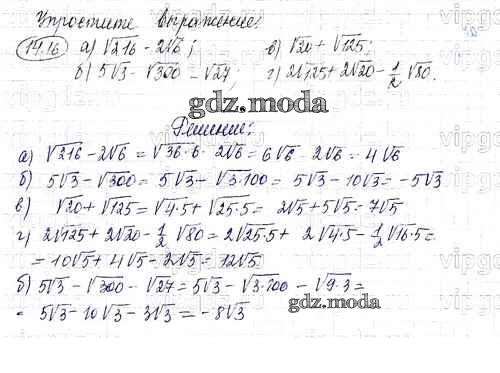 Упростите выражение:
14.16 а) √216 - 2√6; в) √20 + √125;
б) 5√3 - √300 - √27; г) 2√125 + 2√20 - 1/2 √80.
gdz.moda
Решение:
а) √216 - 2√6 = √36·6 - 2√6 = 6√6 - 2√6 = 4√6
б) 5√3 - √300 = 5√3 + √3·100 = 5√3 - 10√3 = -5√3
в) √20 + √125 = √4·5 + √25·5 = 2√5 + 5√5 = 7√5
г) 2√125 + 2√20 - 1/2 √80 = 2√25·5 + 2√4·5 - 1/2 √16·5 =
= 10√5 + 4√5 - 2√5 = 12√5
б) 5√3 - √300 - √27 = 5√3 - √3·100 - √9·3 =
= 5√3 - 10√3 - 3√3 = -8√3
gdz.moda